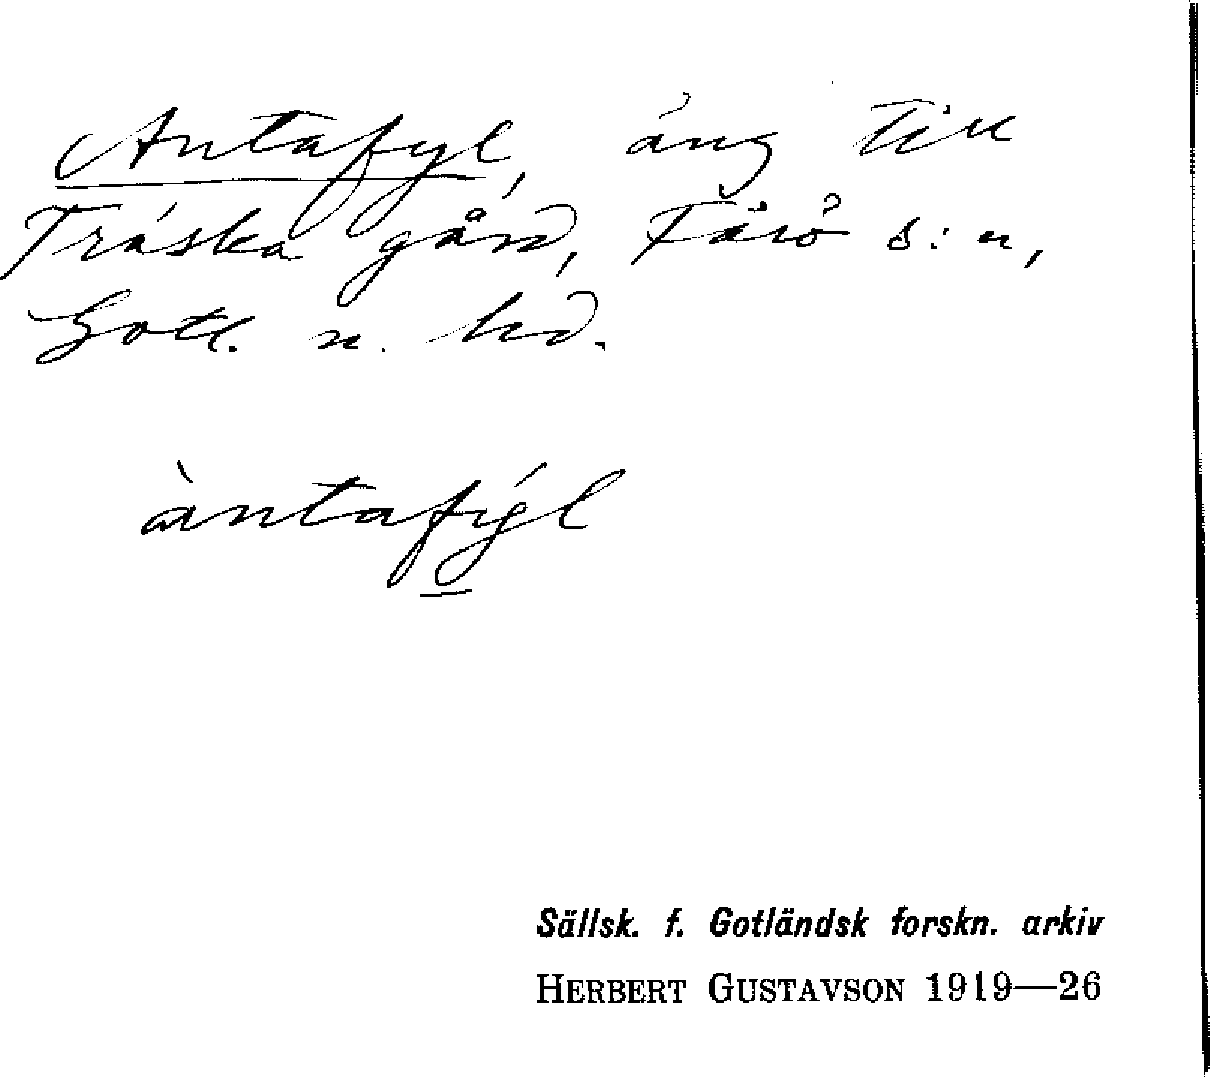 Antafyl, äng till
Träska gård, Fårö s:n,
Gotl. n. hd.
àntafýl
Sällsk. f. Gotländsk forskn. arkiv
HERBERT GUSTAVSON 1919—26